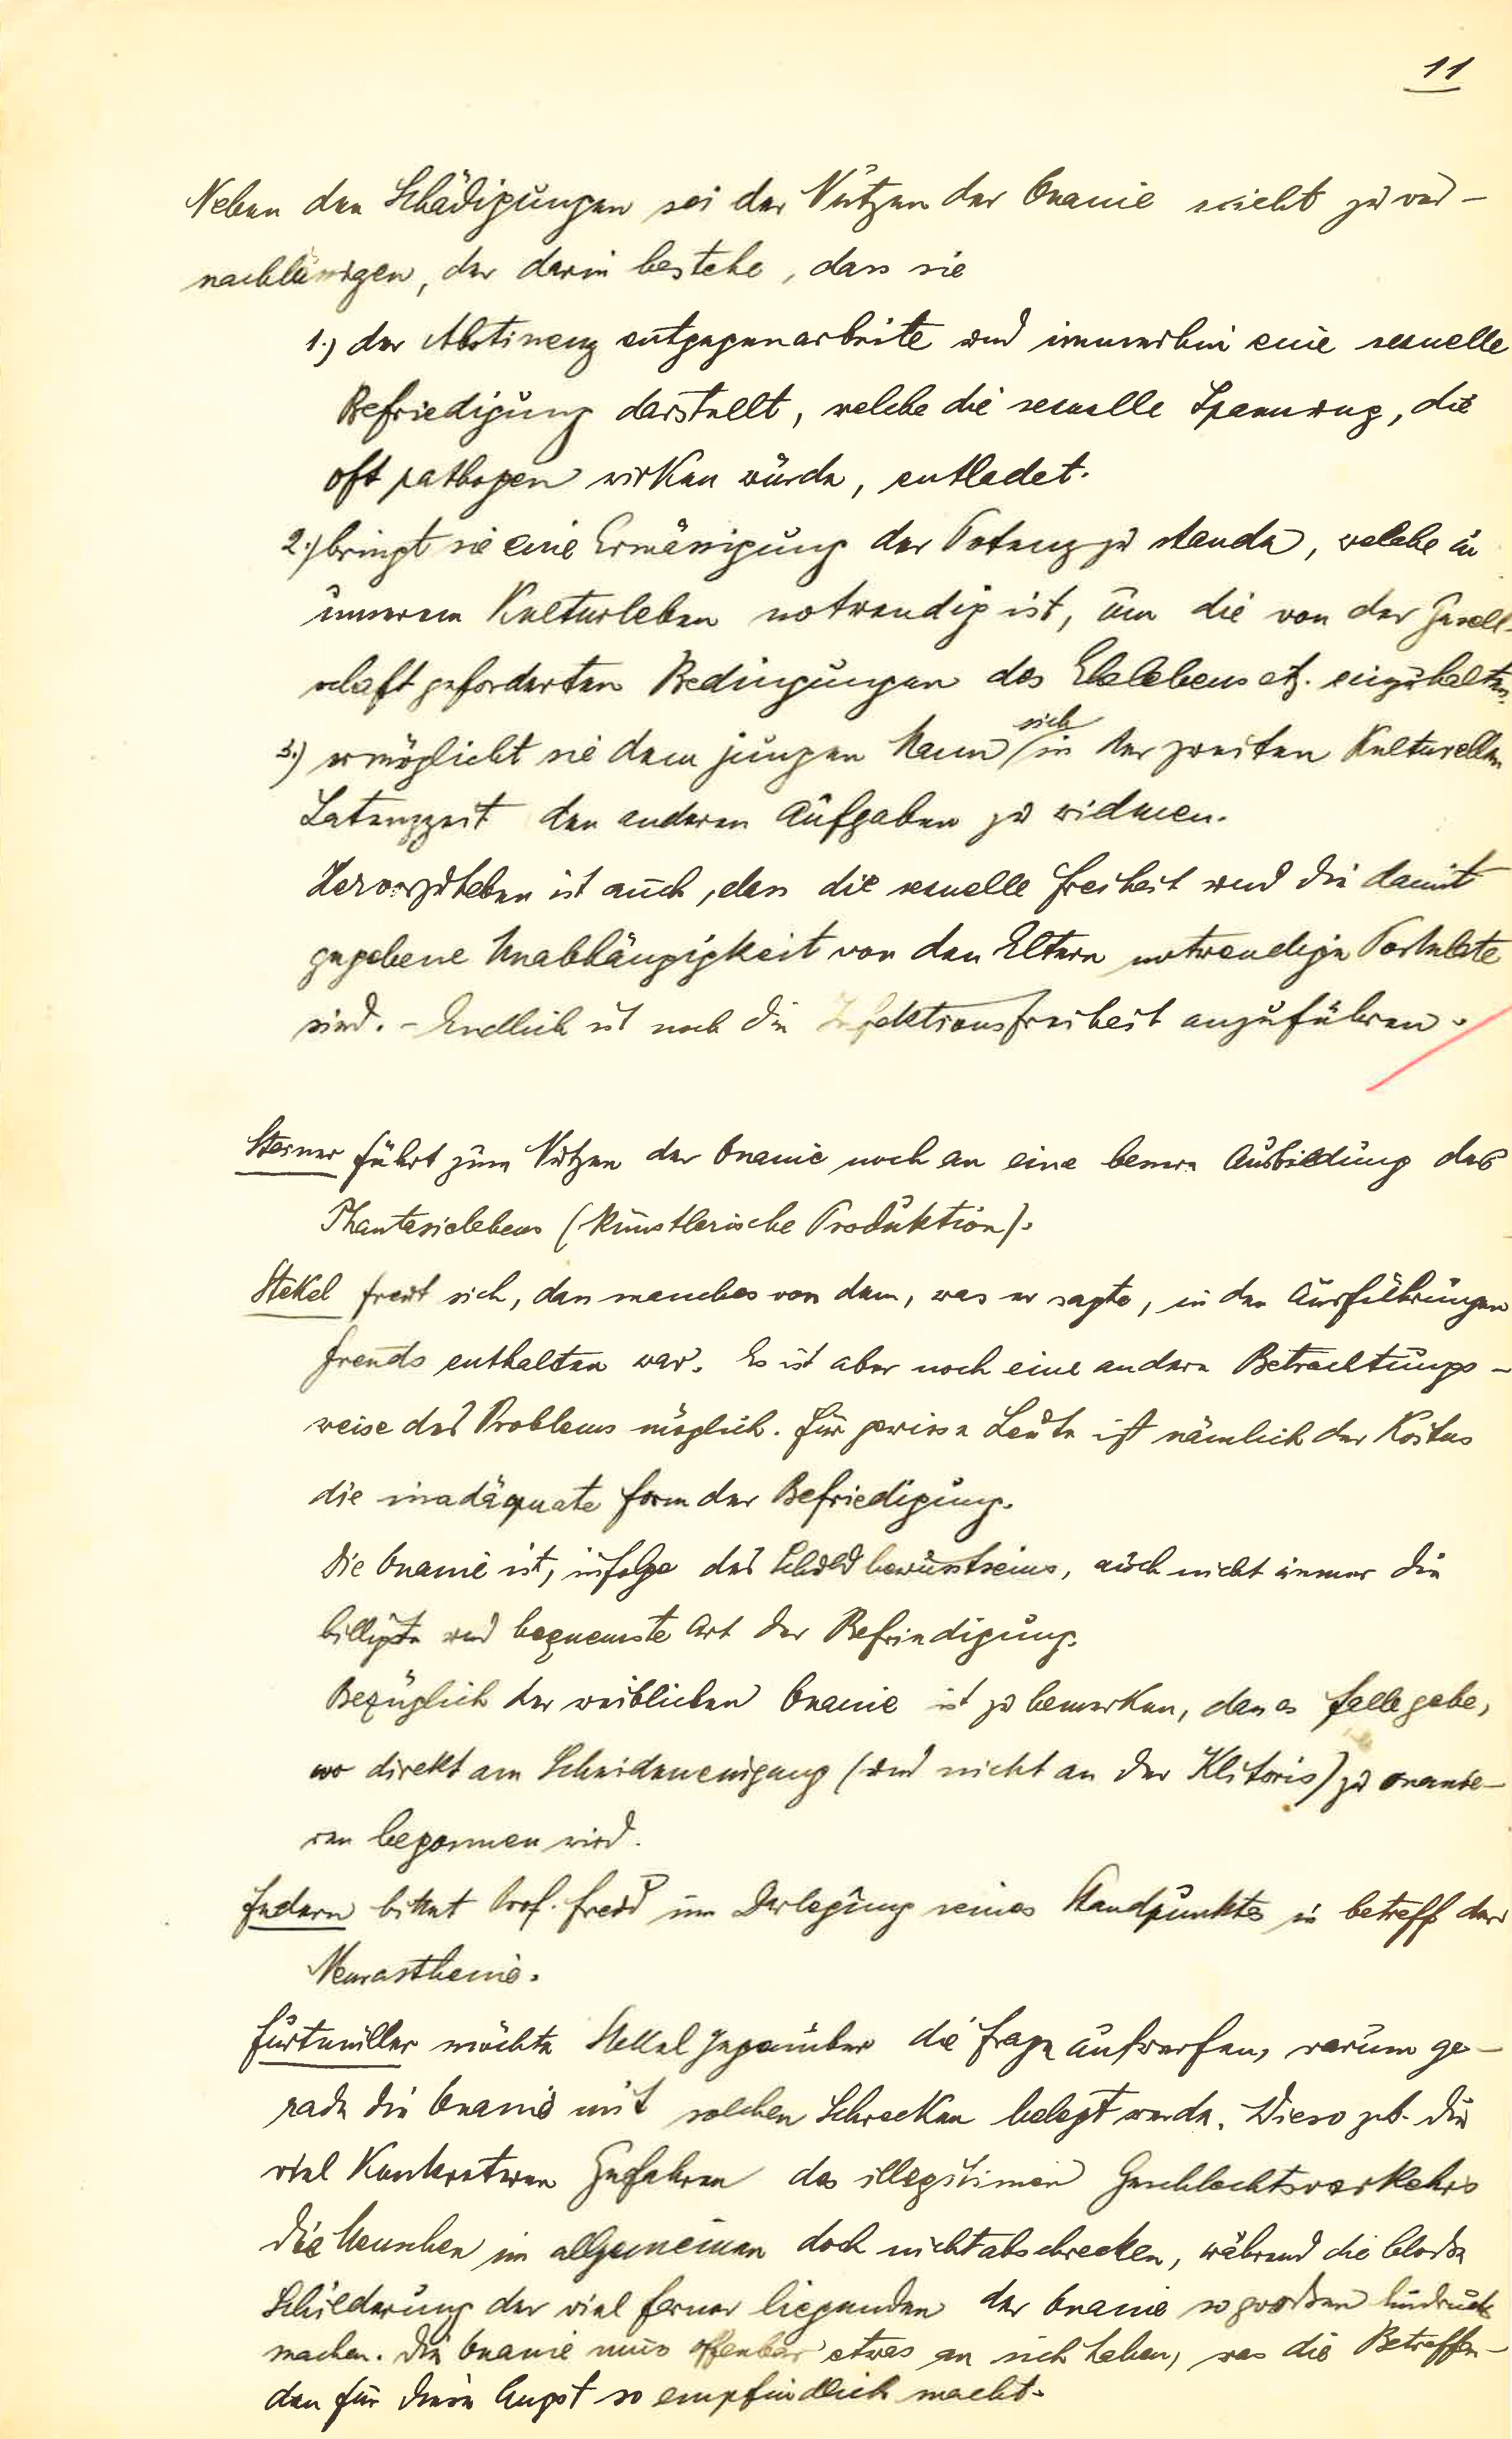 11
Neben den Schädigungen sei der Nutzen der Onanie nicht zu ver-
nachlässigen, der darin bestehe, dass sie
1.) der Abstinenz entgegenarbeite und immerhin eine sexuelle
Befriedigung darstellt, welche die sexuelle Spannung, die
oft pathogen wirken würde, entladet.
2.) bringt sie eine Ermässigung der Potenz zu stande, welche in
unserem Kulturleben notwendig ist, um die von der Gesell-
schaft geforderten Bedingungen des Ehelebens etz. einzuhalten.
3.) ermöglicht sie dem jungen Mann sich in der zweiten Kulturellen
Latenzzeit den anderen Aufgaben zu widmen.
Hervorzuheben ist auch, dass die sexuelle Freiheit und die damit
gegebene Unabhängigkeit von den Eltern notwendige Postulate
sind. - Endlich ist noch die Infektionsfreiheit anzuführen.
Steiner führt zum Nutzen der Onanie noch an eine bessere Ausbildung des
Phantasielebens (künstlerische Produktion).
Stekel freut sich, dass manches von dem, was er sagte, in den Ausführungen
Freuds enthalten war. Es ist aber noch eine andere Betrachtungs-
weise des Problems möglich. Für gewisse Leute ist nämlich der Koitus
die inadäquate Form der Befriedigung.
Die Onanie ist, infolge des Schuldbewusstseins, auch nicht immer die
billigste und bequemste Art der Befriedigung.
Bezüglich der weiblichen Onanie ist zu bemerken, dass es Fälle gebe,
wo direkt am Scheideneingang (und nicht an der Klitoris) zu onanie-
ren begonnen wird.
Federn bittet Prof. Freud um Darlegung seines Standpunktes in betreff der
Neurasthenie.
Furtmüller möchte Stekel gegenüber die Frage aufwerfen, warum ge-
rade die Onanie mit solchen Schrecken belegt werde. Wieso z.b. die
viel Konkreteren Gefahren des illegitimen Geschlechtsverkehrs
die Menschen im allgemeinen doch nicht abschrecken, während die blosse
Schilderung der viel ferner liegenden der Onanie so grossen Eindruck
machen. Die Onanie muss offenbar etwas an sich haben, was die Betreffen-
den für diese Angst so empfindlich macht.